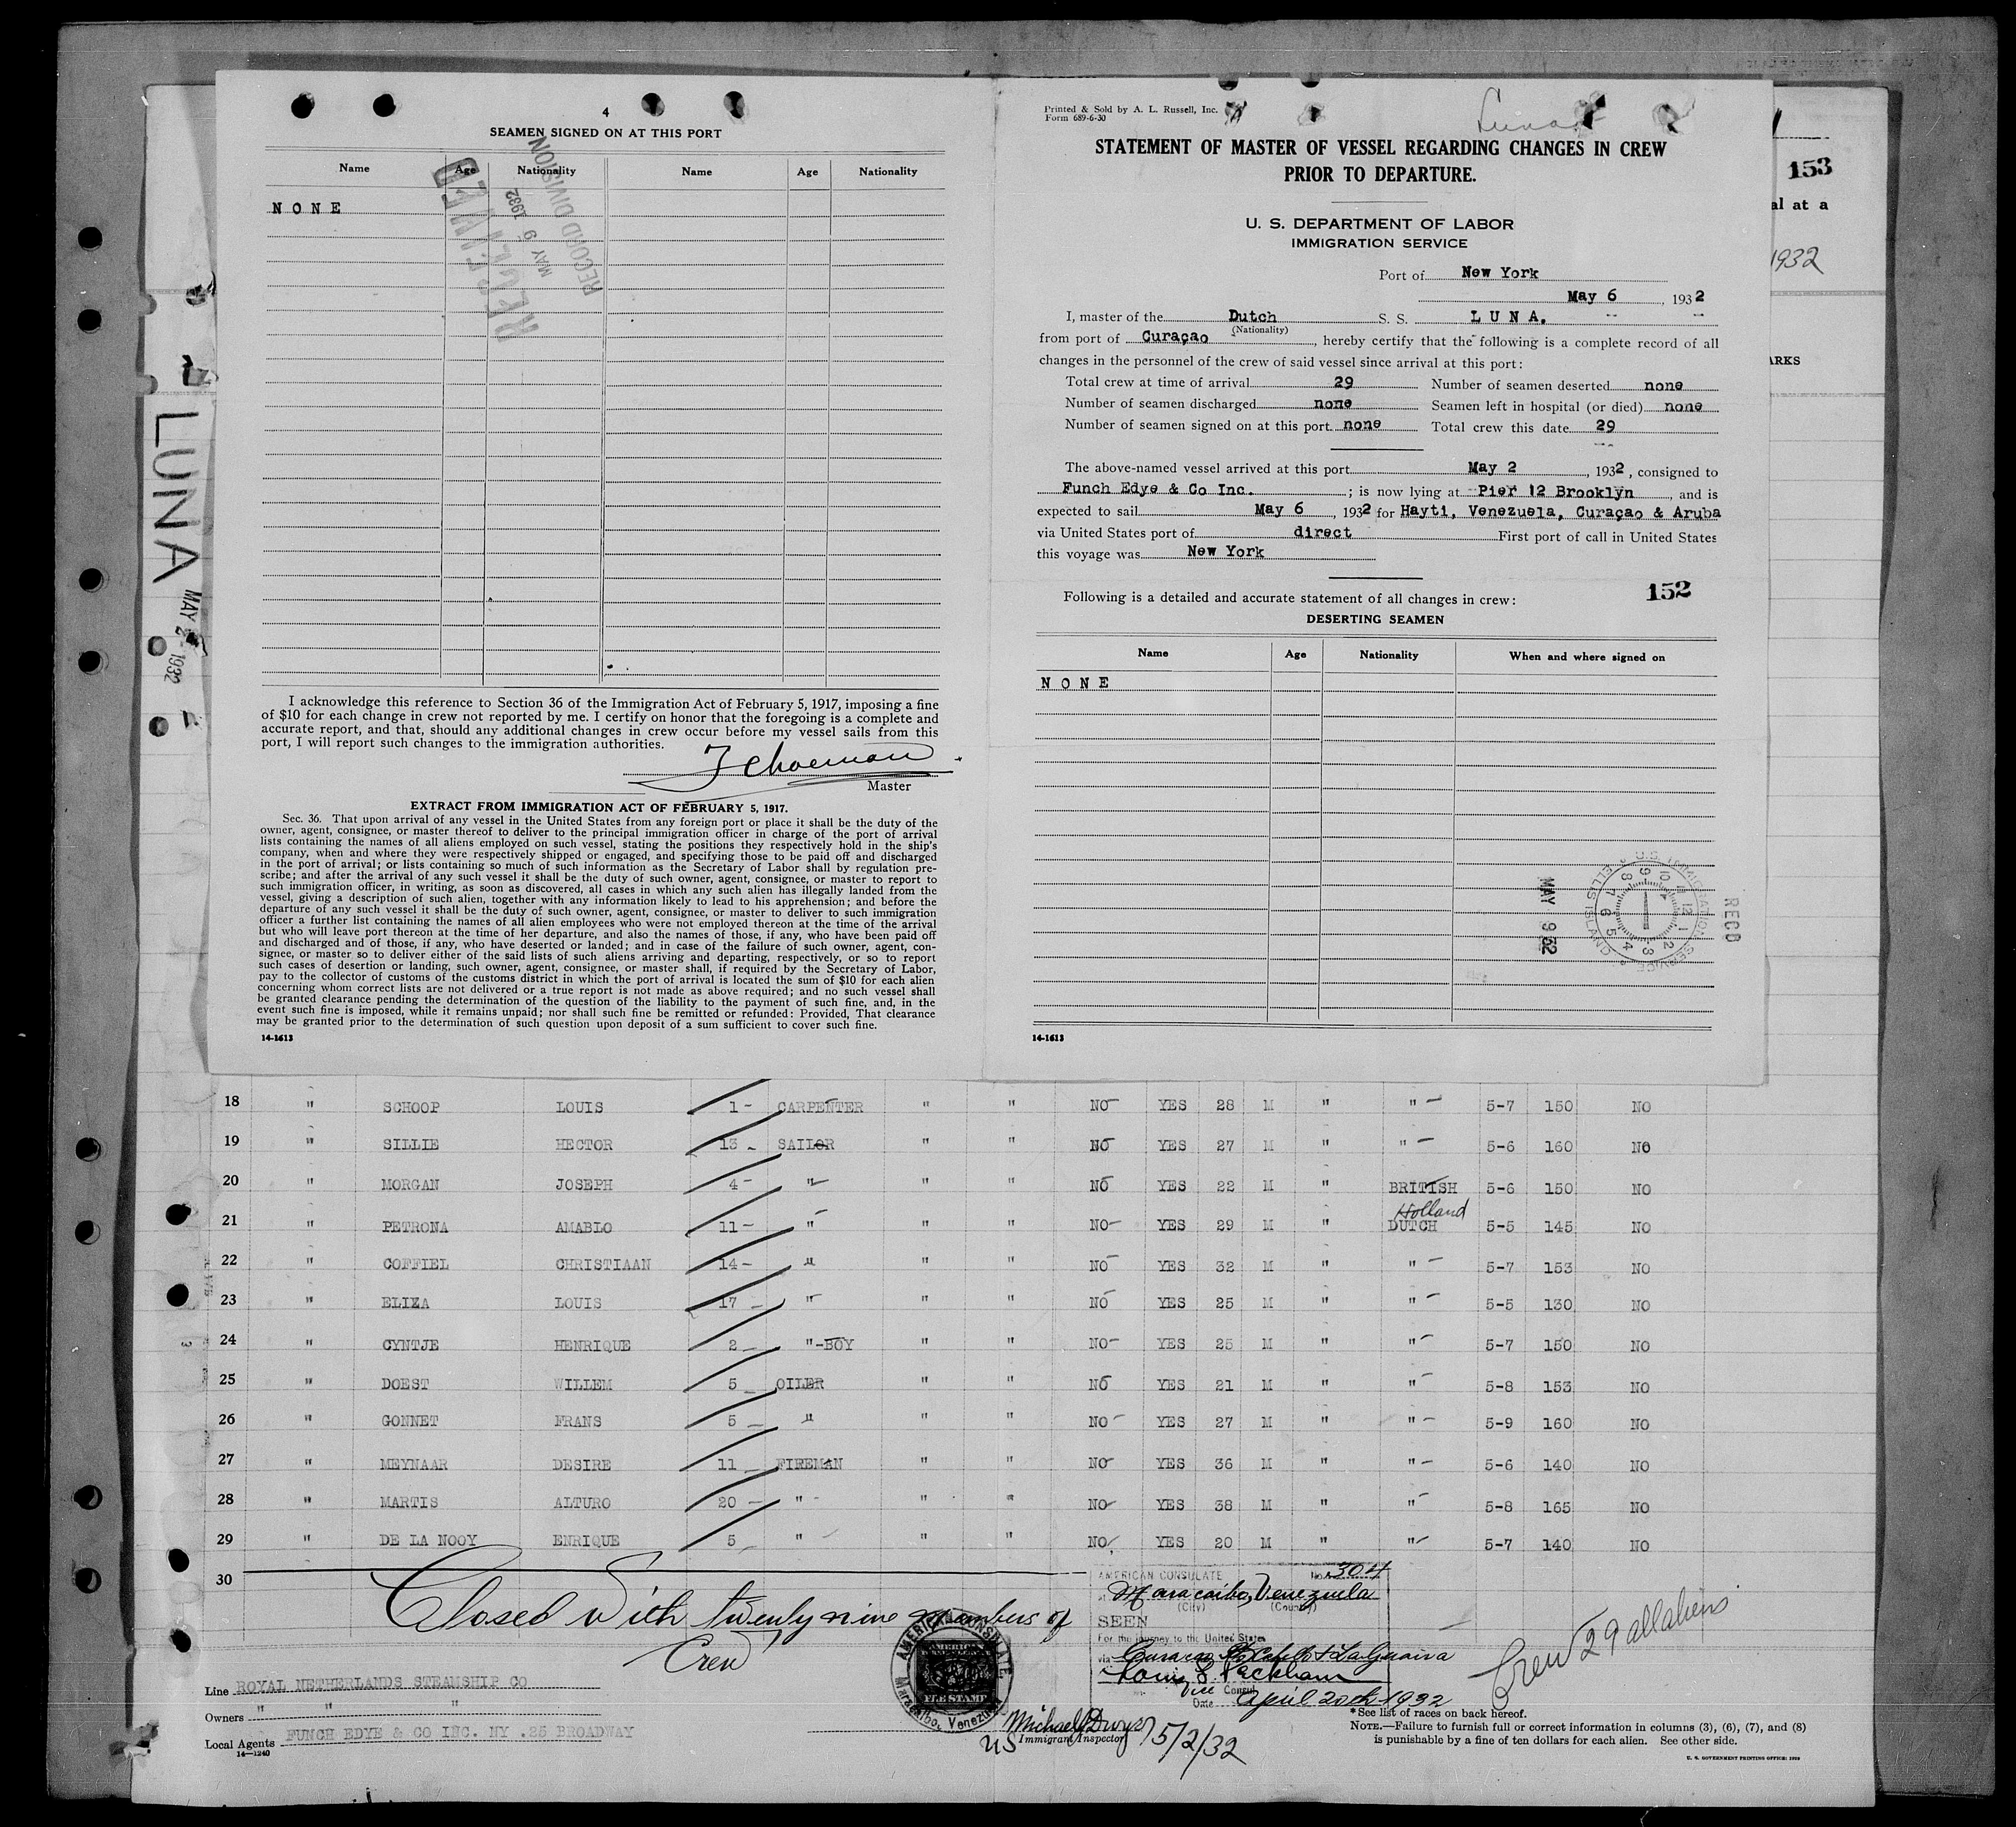 4
SEAMEN SIGNED ON AT THIS PORT
Name Age Nationality Name Age Nationality
NONE
RECEIVED
MAY 9 1932
RECORD DIVISION
I acknowledge this reference to Section 36 of the Immigration Act of February 5, 1917, imposing a fine
of $10 for each change in crew not reported by me. I certify on honor that the foregoing is a complete and
accurate report, and that, should any additional changes in crew occur before my vessel sails from this
port, I will report such changes to the immigration authorities.
Master
EXTRACT FROM IMMIGRATION ACT OF FEBRUARY 5, 1917.
Sec. 36. That upon arrival of any vessel in the United States from any foreign port or place it shall be the duty of the
owner, agent, consignee, or master thereof to deliver to the principal immigration officer in charge of the port of arrival
lists containing the names of all aliens employed on such vessel, stating the positions they respectively hold in the ship's
company, when and where they were respectively shipped or engaged, and specifying those to be paid off and discharged
in the port of arrival; or lists containing so much of such information as the Secretary of Labor shall by regulation pre-
scribe; and after the arrival of any such vessel it shall be the duty of such owner, agent, consignee, or master to report to
such immigration officer, in writing, as soon as discovered, all cases in which any such alien has illegally landed from the
vessel, giving a description of such alien, together with any information likely to lead to his apprehension; and before the
departure of any such vessel it shall be the duty of such owner, agent, consignee, or master to deliver to such immigration
officer a further list containing the names of all alien employees who were not employed thereon at the time of the arrival
but who will leave port thereon at the time of her departure, and also the names of those, if any, who have been paid off
and discharged and of those, if any, who have deserted or landed; and in case of the failure of such owner, agent, con-
signee, or master so to deliver either of the said lists of such aliens arriving and departing, respectively, or so to report
such cases of desertion or landing, such owner, agent, consignee, or master shall, if required by the Secretary of Labor,
pay to the collector of customs of the customs district in which the port of arrival is located the sum of $10 for each alien
concerning whom correct lists are not delivered or a true report is not made as above required; and no such vessel shall
be granted clearance pending the determination of the question of the liability to the payment of such fine, and, in the
event such fine is imposed, while it remains unpaid; nor shall such fine be remitted or refunded: Provided, That clearance
may be granted prior to the determination of such question upon deposit of a sum sufficient to cover such fine.
14-1613
Printed & Sold by A. L. Russell, Inc.
Form 689-6-30
Luna
STATEMENT OF MASTER OF VESSEL REGARDING CHANGES IN CREW
PRIOR TO DEPARTURE.
U. S. DEPARTMENT OF LABOR
IMMIGRATION SERVICE
Port of New York
May 6, 1932
I, master of the Dutch S. S. LUNA.
(Nationality)
from port of Curaçao, hereby certify that the following is a complete record of all
changes in the personnel of the crew of said vessel since arrival at this port:
Total crew at time of arrival 29 Number of seamen deserted none
Number of seamen discharged none Seamen left in hospital (or died) none
Number of seamen signed on at this port none Total crew this date 29
The above-named vessel arrived at this port May 2, 1932, consigned to
Funch Edye & Co Inc. ; is now lying at Pier 12 Brooklyn, and is
expected to sail May 6, 1932 for Hayti, Venezuela, Curaçao & Aruba
via United States port of direct First port of call in United States
this voyage was New York
152
Following is a detailed and accurate statement of all changes in crew:
DESERTING SEAMEN
Name Age Nationality When and where signed on
NONE
MAY 9 32
U.S. IMMIGRATION SERVICE ELLIS ISLAND
RECD
14-1613
153
al at a
1932
ARKS
LUNA
MAY 2 - 1932
18 " SCHOOP LOUIS 1 - CARPENTER " " NO YES 28 M " " 5-7 150 NO
19 " SILLIE HECTOR 13 - SAILOR " " NO YES 27 M " " 5-6 160 NO
20 " MORGAN JOSEPH 4 - " " " NO YES 22 M " BRITISH 5-6 150 NO
Holland
21 " PETRONA AMABLO 11 - " " " NO YES 29 M " DUTCH 5-5 145 NO
22 " COFFIEL CHRISTIAAN 14 - " " " NO YES 32 M " " 5-7 153 NO
23 " ELIZA LOUIS 17 - " " " NO YES 25 M " " 5-5 130 NO
24 " CYNTJE HENRIQUE 2 - "-BOY " " NO YES 25 M " " 5-7 150 NO
25 " DOEST WILLEM 5 - OILER " " NO YES 21 M " " 5-8 153 NO
26 " GONNET FRANS 5 - " " " NO YES 27 M " " 5-9 160 NO
27 " MEYNAAR DESIRE 11 - FIREMAN " " NO YES 36 M " " 5-6 140 NO
28 " MARTIS ALTURO 20 - " " " NO YES 38 M " " 5-8 165 NO
29 " DE LA NOOY ENRIQUE 5 - " " " NO YES 20 M " " 5-7 140 NO
30
Closed with twenty nine members of
Crew
AMERICAN CONSULATE No. 304
Maracaibo, Venezuela
(City) (Country)
SEEN
For the journey to the United States
via Curacao P. Cabello & La Guaira
Louis L. Packham
Vice Consul
Date April 20th 1932
AMERICAN CONSULATE
Maracaibo, Venezuela
AMERICAN
FEE STAMP
Crew 29 all aliens
Line ROYAL NETHERLANDS STEAMSHIP CO
Owners " " "
Local Agents FUNCH EDYE & CO INC. NY .25 BROADWAY
14-1240
Michael Dwyer 5/2/32
US Immigrant Inspector
*See list of races on back hereof.
NOTE.—Failure to furnish full or correct information in columns (3), (6), (7), and (8)
is punishable by a fine of ten dollars for each alien. See other side.
U. S. GOVERNMENT PRINTING OFFICE: 1929